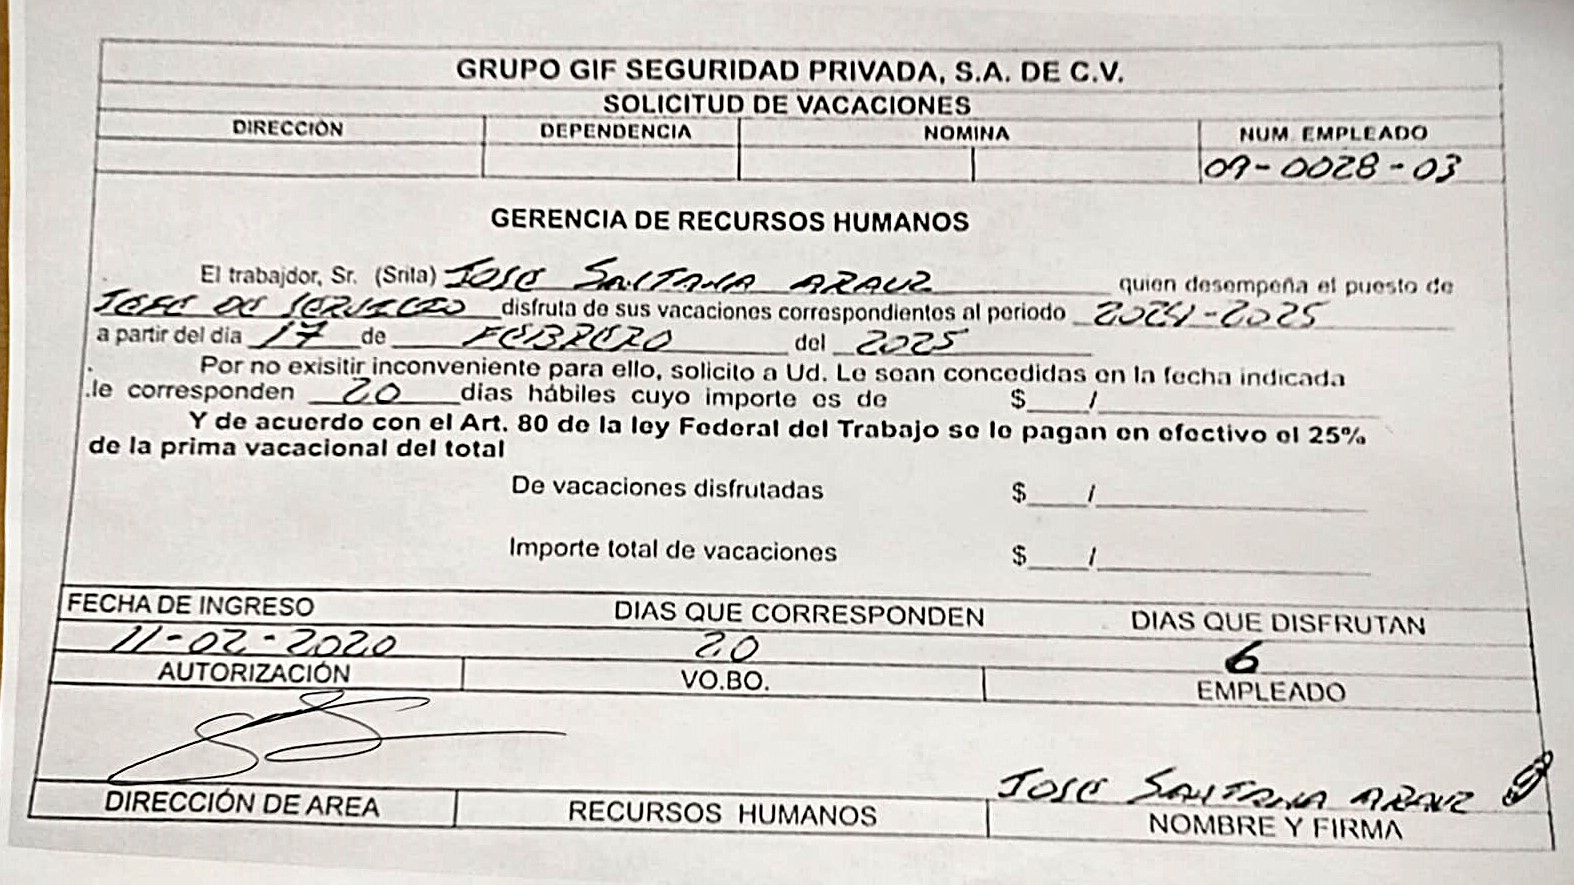 GRUPO GIF SEGURIDAD PRIVADA, S.A. DE C.V.
SOLICITUD DE VACACIONES
DIRECCIÓN DEPENDENCIA NOMINA NUM. EMPLEADO
09-0028-03
GERENCIA DE RECURSOS HUMANOS
El trabajdor, Sr. (Srita) JOSE SANTANA ARAUZ quien desempeña el puesto de
JEFE DE SERVICIO disfruta de sus vacaciones correspondientes al periodo 2024-2025
a partir del dia 17 de FEBRERO del 2025
Por no exisitir inconveniente para ello, solicito a Ud. Le sean concedidas en la fecha indicada
.le corresponden 20 dias hábiles cuyo importe es de $ /
Y de acuerdo con el Art. 80 de la ley Federal del Trabajo se le pagan en efectivo el 25%
de la prima vacacional del total
De vacaciones disfrutadas $ /
Importe total de vacaciones $ /
FECHA DE INGRESO DIAS QUE CORRESPONDEN DIAS QUE DISFRUTAN
11-02-2020 20 6
AUTORIZACIÓN VO.BO. EMPLEADO
JOSE SANTANA ARAUZ
DIRECCIÓN DE AREA RECURSOS HUMANOS NOMBRE Y FIRMA